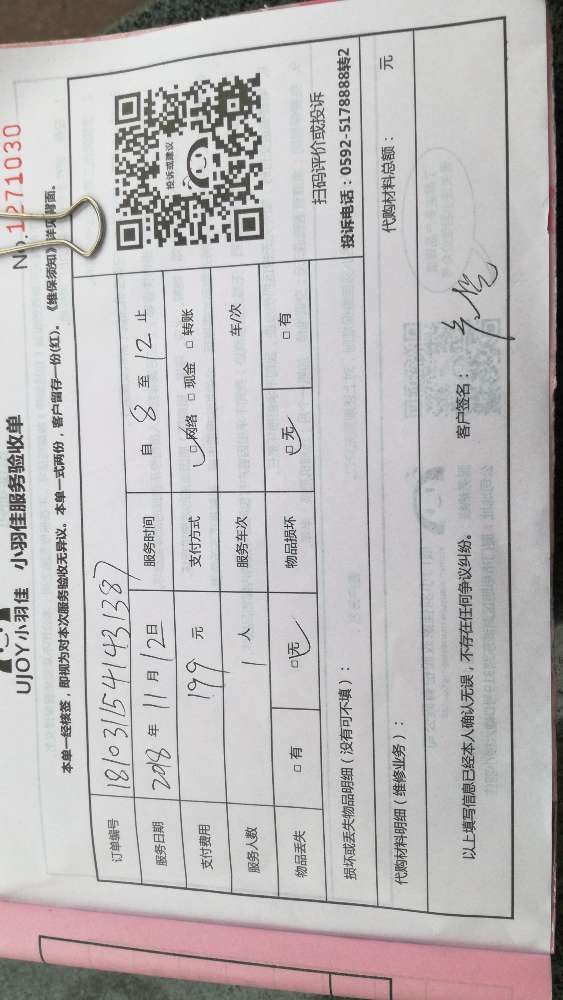 No.1271030
UJOY小羽佳 小羽佳服务验收单
本单一经核签，即视为对本次服务验收无异议。本单一式两份，客户留存一份(红)。《维保须知》详见背面。
订单编号 181031541431387
服务日期 2018 年 11 月 12 日 服务时间 自 8 至 12 止
支付费用 199 元 支付方式 ☑ 网络 □ 现金 □ 转账
服务人数 1 人 服务车次 车/次
物品丢失 □ 有 ☑ 无 物品损坏 ☑ 无 □ 有
投诉或建议
扫码评价或投诉
投诉电话：0592-5178888转2
损坏或丢失物品明细（没有可不填）：
代购材料明细（维修业务）： 代购材料总额： 元
以上填写信息已经本人确认无误，不存在任何争议纠纷。 客户签名：